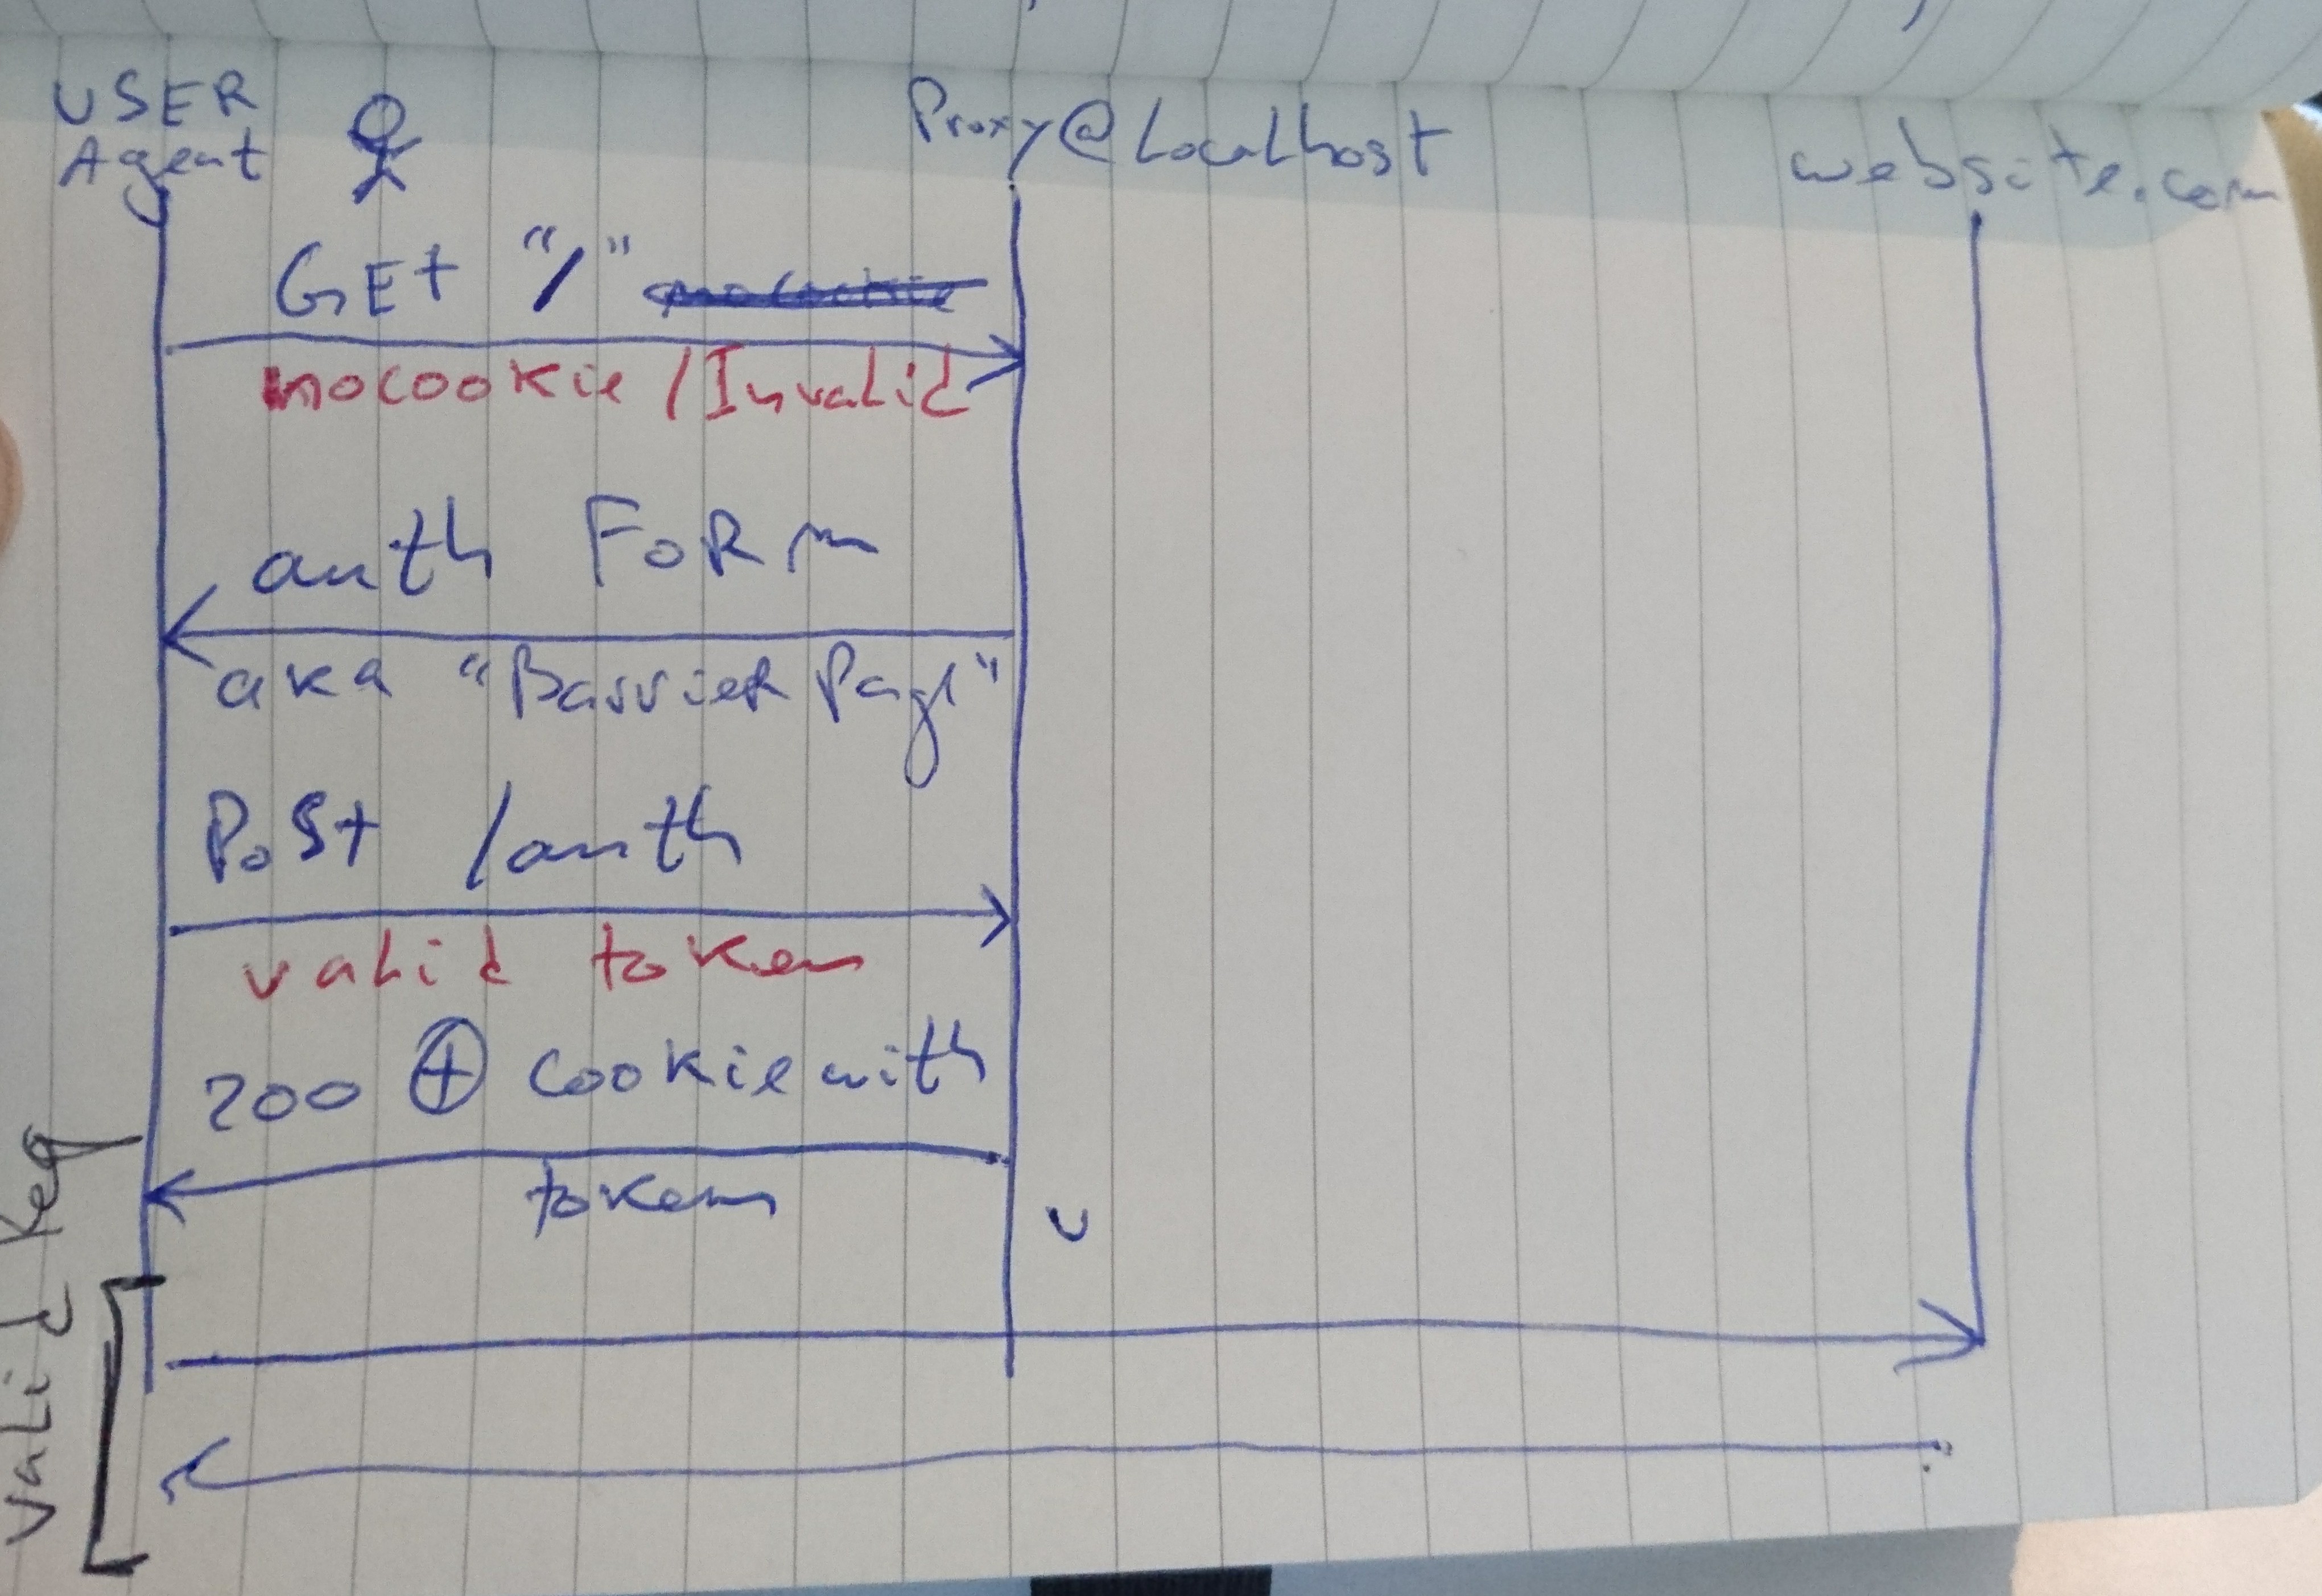 USER
Agent
Proxy@Localhost
website.com
GET "/"
nocookie / Invalid
auth FORm
aka "BarrieR Page"
PoSt /auth
valid token
200 ⊕ cookie with
token
valid Key